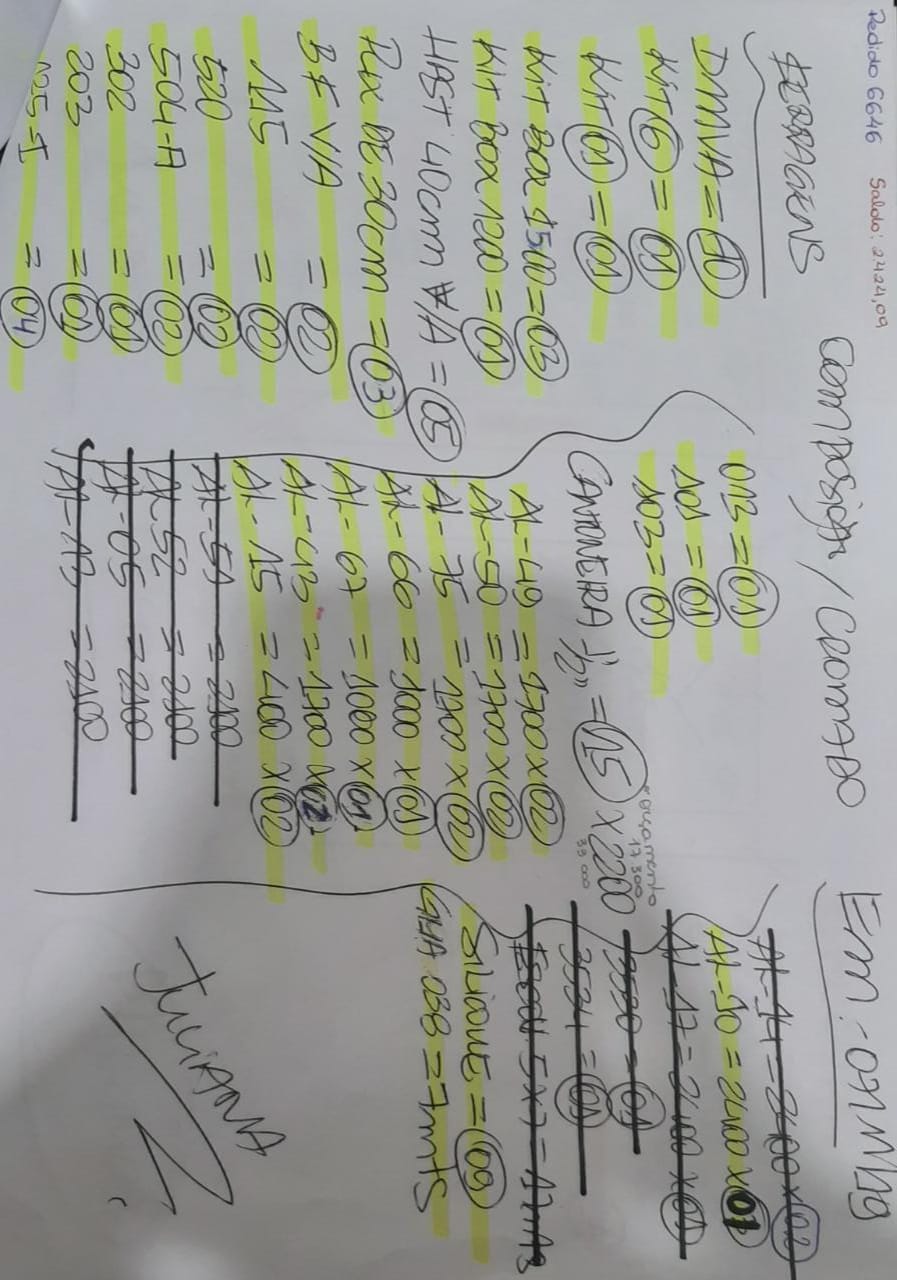 Pedido 6646 Saldo: 2.424,09
Composição / Cromado
Em: 07/M
FERRAGENS
DMVA = 10
Kit 6 = 01
Kit 01 = 01
Kit Box 1500 = 03
Kit Box 1200 = 01
HAST 40cm VA = 05
Pux DE 30cm = 03
BF VA = 02
115 = 02
520 = 02
504-A = 02
302 = 01
203 = 01
105-I = 04
013 = 01
101 = 01
103 = 01
CANTONEIRA 1/2" = 15 x 2200
orçamento
17.300
33.000
AL-49 = 1700 x 02
AL-50 = 1700 x 02
AL-75 = 1700 x 02
AL-66 = 1000 x 01
AL-67 = 1000 x 01
AL-43 = 1700 x 02
AL-15 = 2400 x 02
AL-51 = 2100
AL-52 = 2100
AL-05 = 2100
AL-19 = 2100
AL-14 = 2400 x 02
AL-10 = 2400 x 01
AL-17 = 2400 x 01
3530 = 01
3534 = 01
5x7 = 17mts
SILICONE = 09
GUA 038 = 7mts
JULIANA